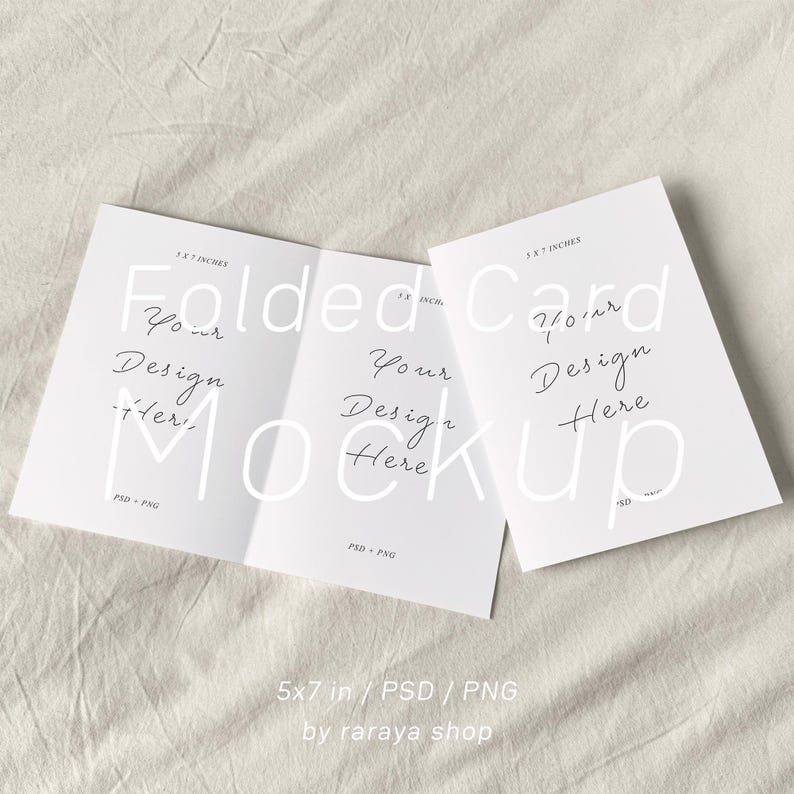 Folded Card
Mockup
5 X 7 INCHES
Your
Design
Here
PSD + PNG
5 X 7 INCHES
Your
Design
Here
PSD + PNG
5 X 7 INCHES
Your
Design
Here
PSD + PNG
5x7 in / PSD / PNG
by raraya shop